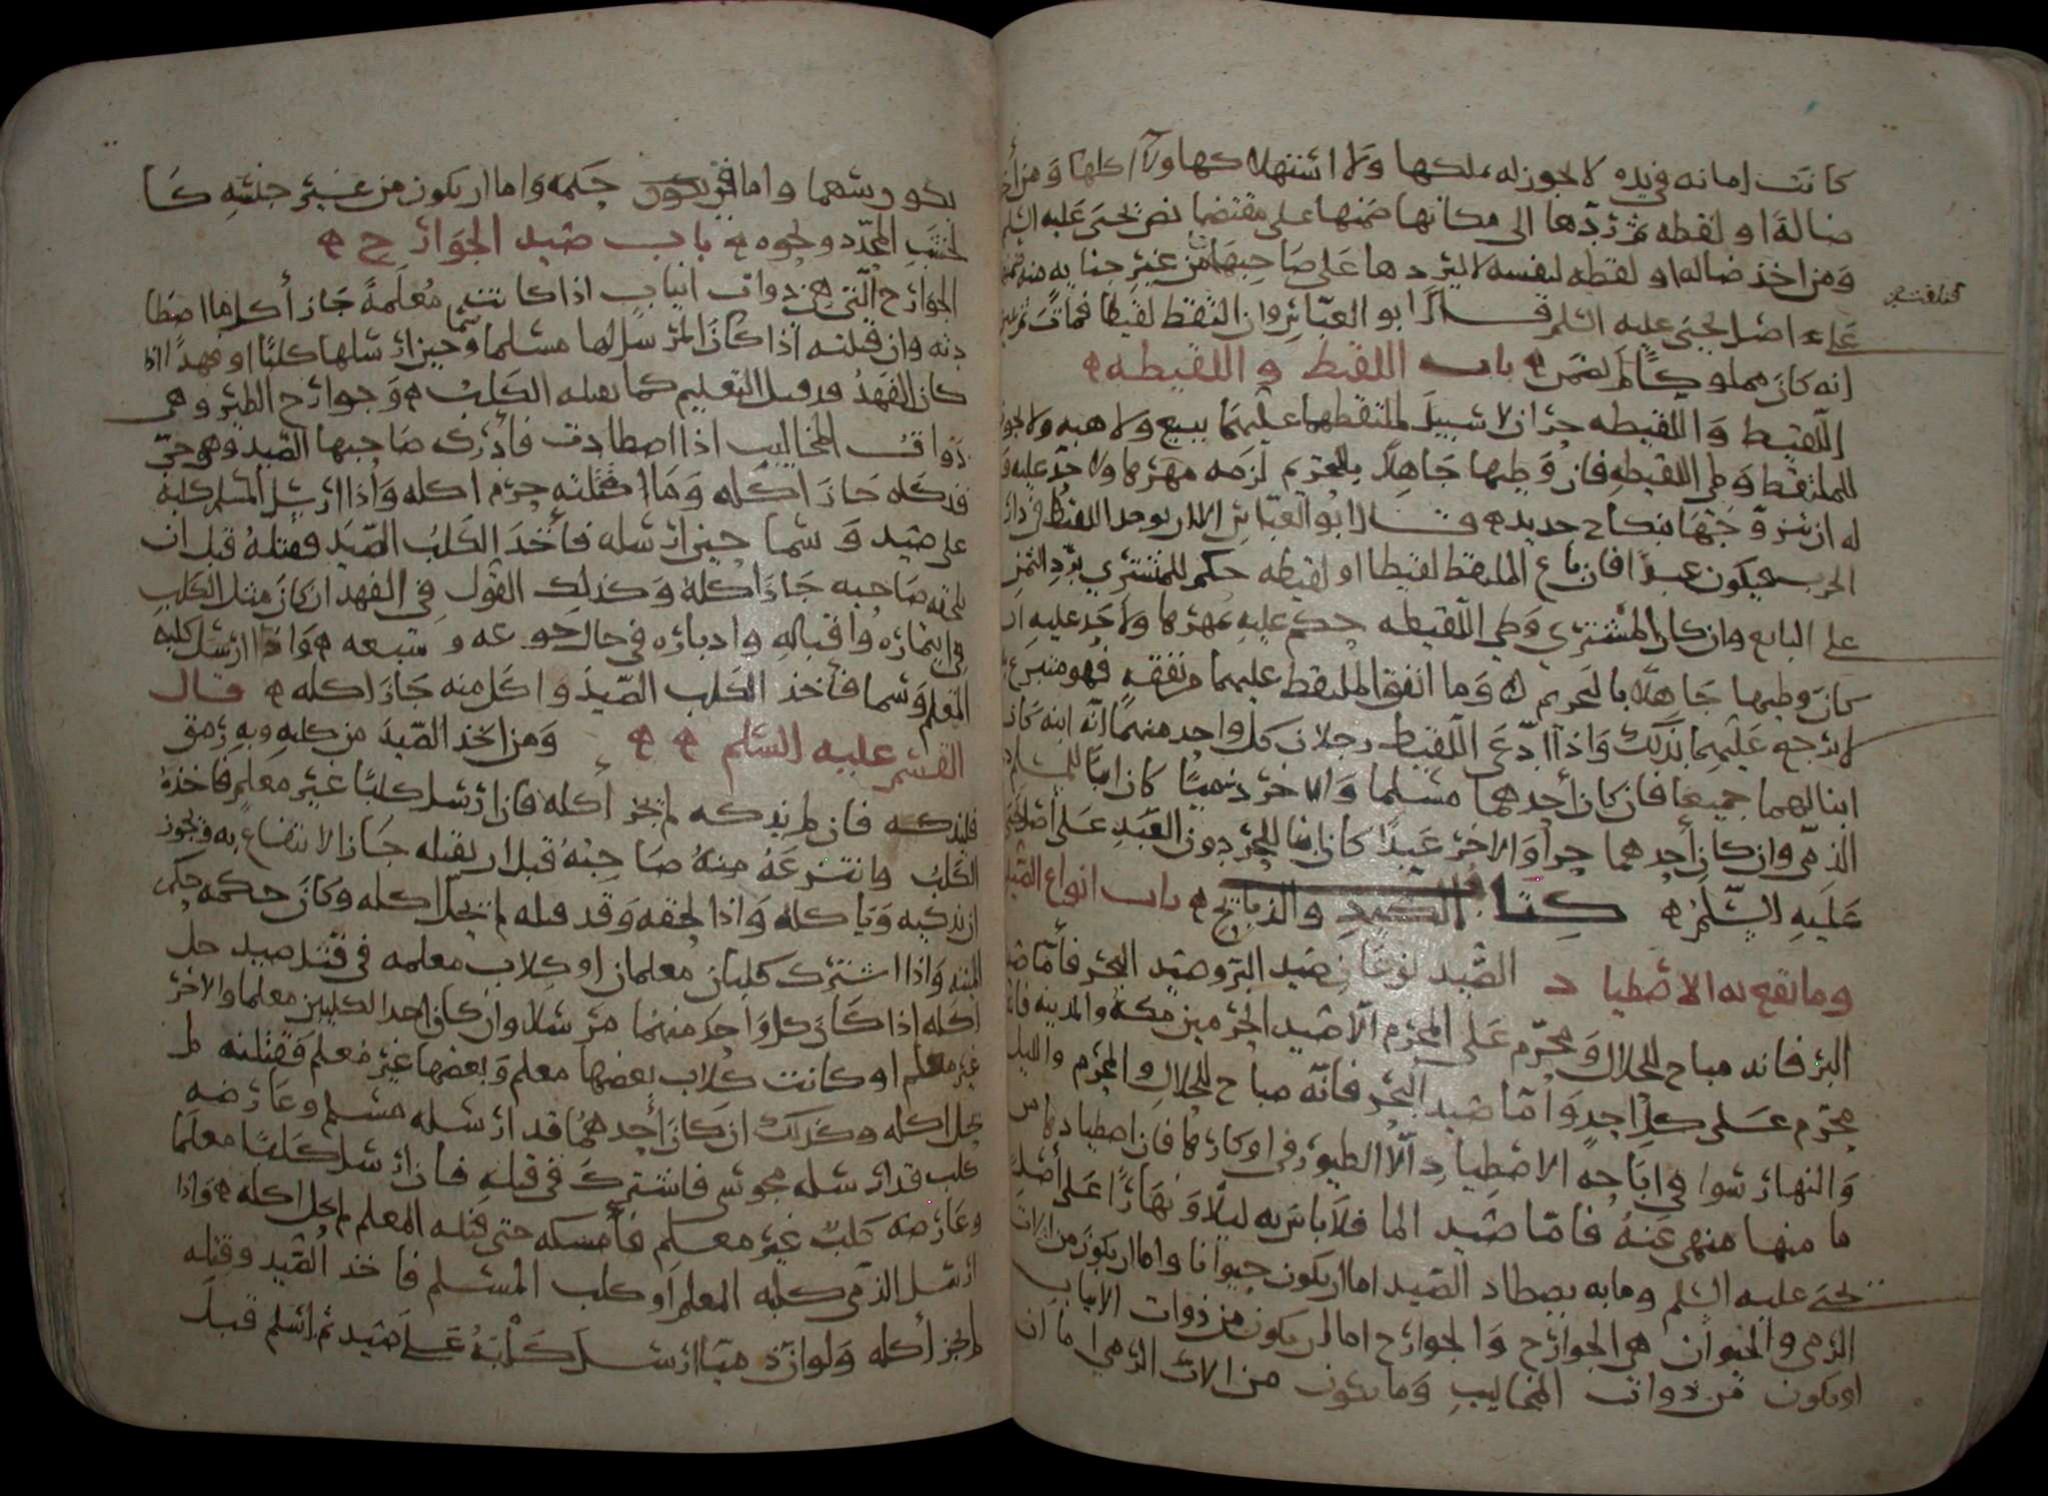 كانت امانه في يده لا يجوز له تملكها ولا استهلاكها ولا اكلها ومن أخذ
ضالة او لقطه ثم ردها الى مكانها ضمنها على مقتضا نص يحيى عليه السلم
ومن اخذ ضاله او لقطه لنفسه لا ليردها على صاحبها من غير جنايه منه
على اصل يحيى عليه السلم قال ابو العباس وان التقط لقيطا فمات ثم
انه كان مملوكا لم يضمن ه باب اللقيط و اللقيطه ه
اللقيط و اللقيطه حران لا سبيل لملتقطهما عليهما ببيع ولا هبه ولا يجوز
للملتقط وطى اللقيطه فان وطيها جاهلا بالتحريم لزمه مهرها ولا حد عليه و
له ان يتزوجها بنكاح جديد ه وقال ابو العباس الا ان يوجد اللقيط في دار
الحرب فيكون عبدا فان باع الملتقط لقيطا او لقيطه حكم للمشتري برد الثمن
على البايع وان كان المشتري وطى اللقيطه حكم عليه بمهرها ولا حد عليه ان
كان وطيها جاهلا بالتحريم ه وما انفق الملتقط عليهما من نفقه فهو متبرع
لا يرجع عليهما بذلك واذا ادعى اللقيط رجلان كل واحد منهما انه ابنه كان
ابنا لهما جميعا فان كان أحدهما مسلما والاخر ذميا كان ابنا للمسلم دون
الذمى وان كان أحدهما حرا والاخر عبدا كان ابنا للحر دون العبد على اصل يحيى
عليه السلم ه كتاب الصيد والذبايح ه باب انواع الصيد
وما يقع به الاصطياد الصيد نوعان صيد البر وصيد البحر فأما صيد
البر فانه مباح للحلال ومحرم على المحرم الا صيد الحرمين مكه والمدينه فانه
محرم على كل احد وأما صيد البحر فانه مباح للحلال والمحرم والليل
والنهار سوا في اباحه الاصطياد الا الطيور في اوكارها فان اصطيادها من
ما منها منهى عنه فاما صيد الما فلا باس به ليلا ونهارا على أصل
يحيى عليه السلم وما به يصطاد الصيد اما ان يكون حيوانا واما ان يكون من الات
الرمى والحيوان هى الجوارح والجوارح اما ان يكون من ذوات الانياب
او يكون من ذوات المخاليب وما يكون من الات الرمى اما ان
يكون سهما واما في حكمه واما ان يكون من غير جنسه كا
لخشب المحدد ونحوه ه باب صيد الجوارح ه
الجوارح التى هى ذوات انياب اذا كانت معلمة جاز أكل ما اصطا
دته وان قتلته اذا كان المرسل لها مسلما وسما حين ارسلها كلبا او فهدا اذا
كان الفهد قد قبل التعليم كما يقبله الكلب ه وجوارح الطير وهى
ذوات المخاليب اذا اصطادت فأدرك صاحبها الصيد وهو حى
فذكاه جاز اكله وما قتلته حرم اكله واذا ارسل المسلم كلبه
على صيد وسما حين ارسله فأخذ الكلب الصيد فقتله قبل ان
يلحقه صاحبه جاز اكله وكذلك القول في الفهد ان كان مثل الكلب
في ايتماره واقباله وادباره في حال جوعه و شبعه ه واذا ارسل كلبه
المعلم وسما فأخذ الكلب الصيد واكل منه جاز اكله ه قال
القسم عليه السلم ه ه ومن اخذ الصيد من كلبه وبه رمق
فليذكه فان لم يذكه لم يجز أكله فان ارسل كلبا غير معلم فاخذه
الكلب وانتزعه منه صاحبه قبل ان يقتله جاز الانتفاع به ويجوز
ان يذكيه وياكله واذا لحقه وقد قتله لم يحل اكله وكان حكمه حكم
الميته واذا اشترك كلبان معلمان او كلاب معلمه في قتل صيد حل
اكله اذا كان كل واحد منهما مرسلا وان كان احد الكلبين معلما والاخر
غير معلم او كانت كلاب بعضها معلم وبعضها غير معلم فقتلته لم
يحل اكله وكذلك ان كان أحدهما قد ارسله مسلم وعارضه
كلب قد ارسله مجوسى فاشتركا في قتله فان ارسل كلبا معلما
وعارضه كلب غير معلم فأمسكه حتى قتله المعلم لم يحل اكله ه واذا
ارسل الذمى كلبه المعلم او كلب المسلم فاخذ الصيد وقتله
لم يجز أكله ولو ان ذميا ارسل كلبه على صيد ثم اسلم قبل